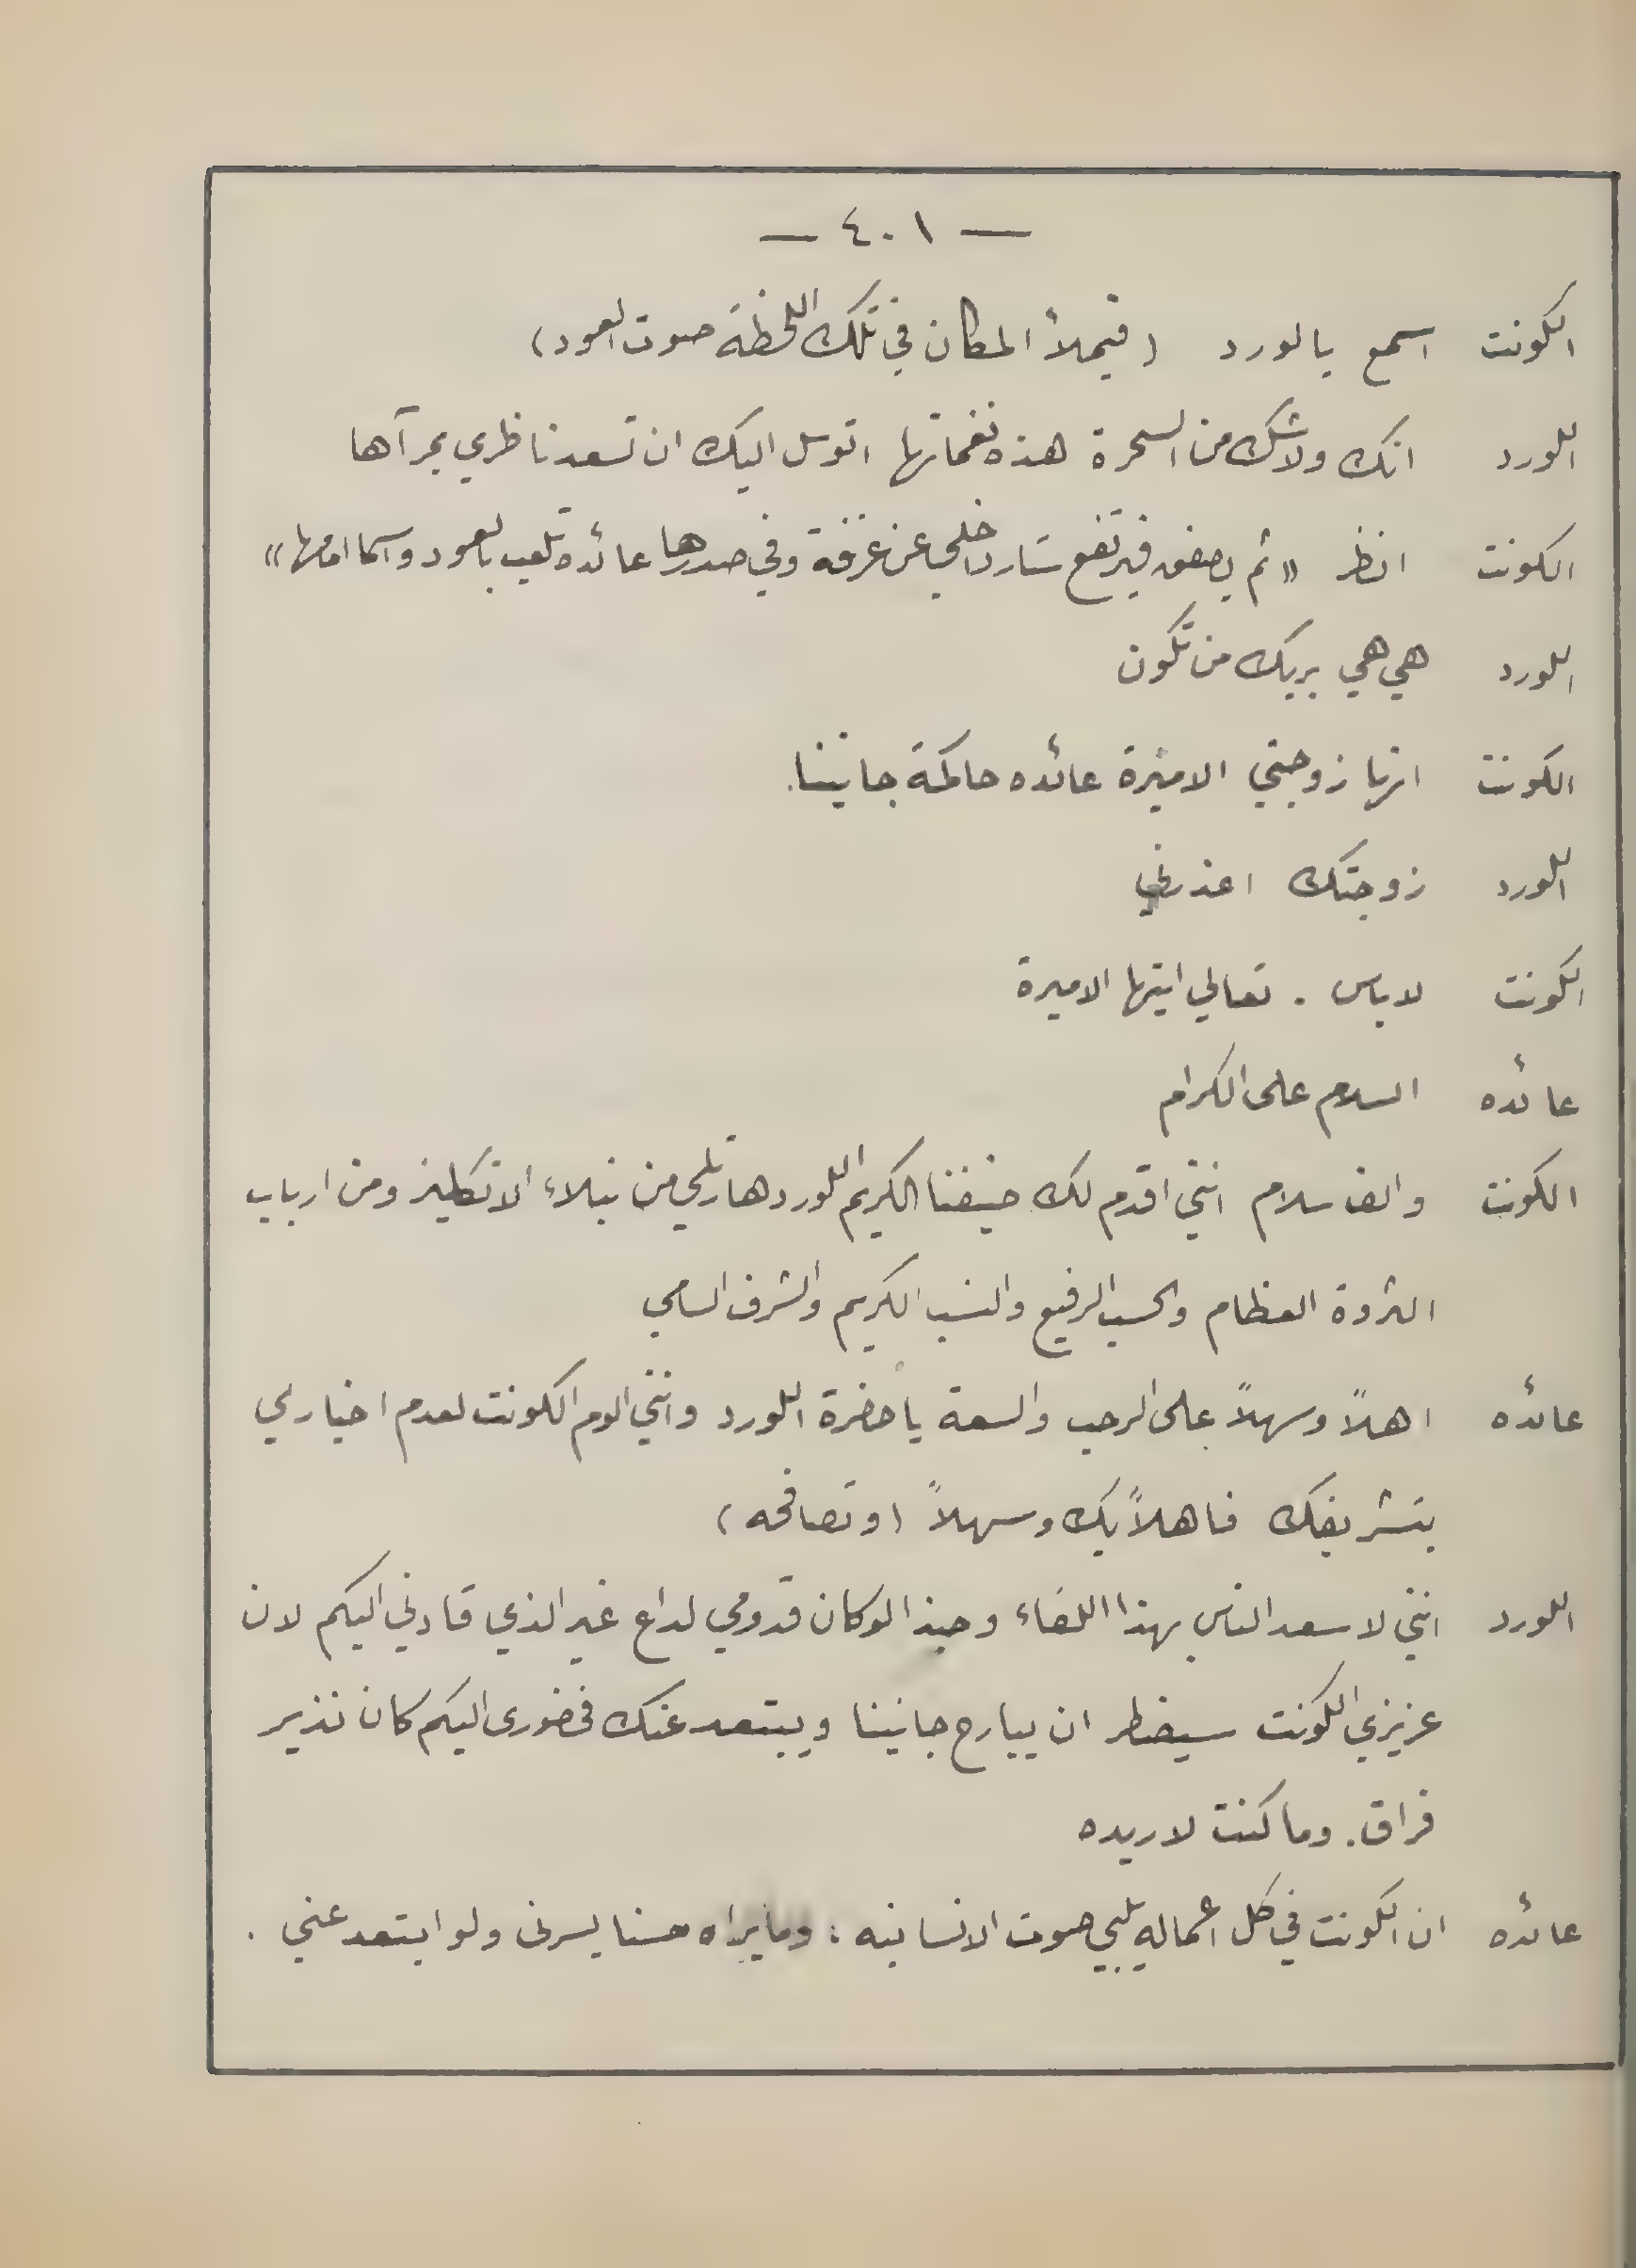 — ٤٠١ —
الكونت اسمع يالورد (فيملأ المكان في تلك اللحظة صوت العود)
اللورد انك ولاشك من السحرة هذه نغماتها اتوسل اليك ان تسعد ناظري بمرآها
الكونت انظر «ثم يصفق فيرتفع ستار داخلي عن غرفة وفي صدرها عائده تلعب بالعود واسما امامها»
اللورد هي هي بربك من تكون
الكونت انها زوجتي الاميرة عائده حاكمة جانينا.
اللورد زوجتك اعذرني
الكونت لاباس . تعالي ايتها الاميرة
عائده السلام على الكرام
الكونت والف سلام انني اقدم لك ضيفنا الكريم اللورد هارتلي من نبلاء الانكليز ومن ارباب
الثروة العظام والحسب الرفيع والنسب الكريم والشرف السامي
عائده اهلاً وسهلاً على الرحب والسعة ياحضرة اللورد وانني الوم الكونت لعدم اخباري
بتشريفك فاهلاً بك وسهلاً (وتصافحه)
اللورد انني لاسعد الناس بهذا اللقاء وحبذا لوكان قدومي لداع غير الذي قادني اليكم لان
عزيزي الكونت سيضطر ان يبارح جانينا ويبتعد عنك فحضوري اليكم كان نذير
فراق. وماكنت لاريده
عائده ان الكونت في كل اعماله يلبي صوت الانسانيه : ومايراه حسنا يسرني ولو ابتعد عني .